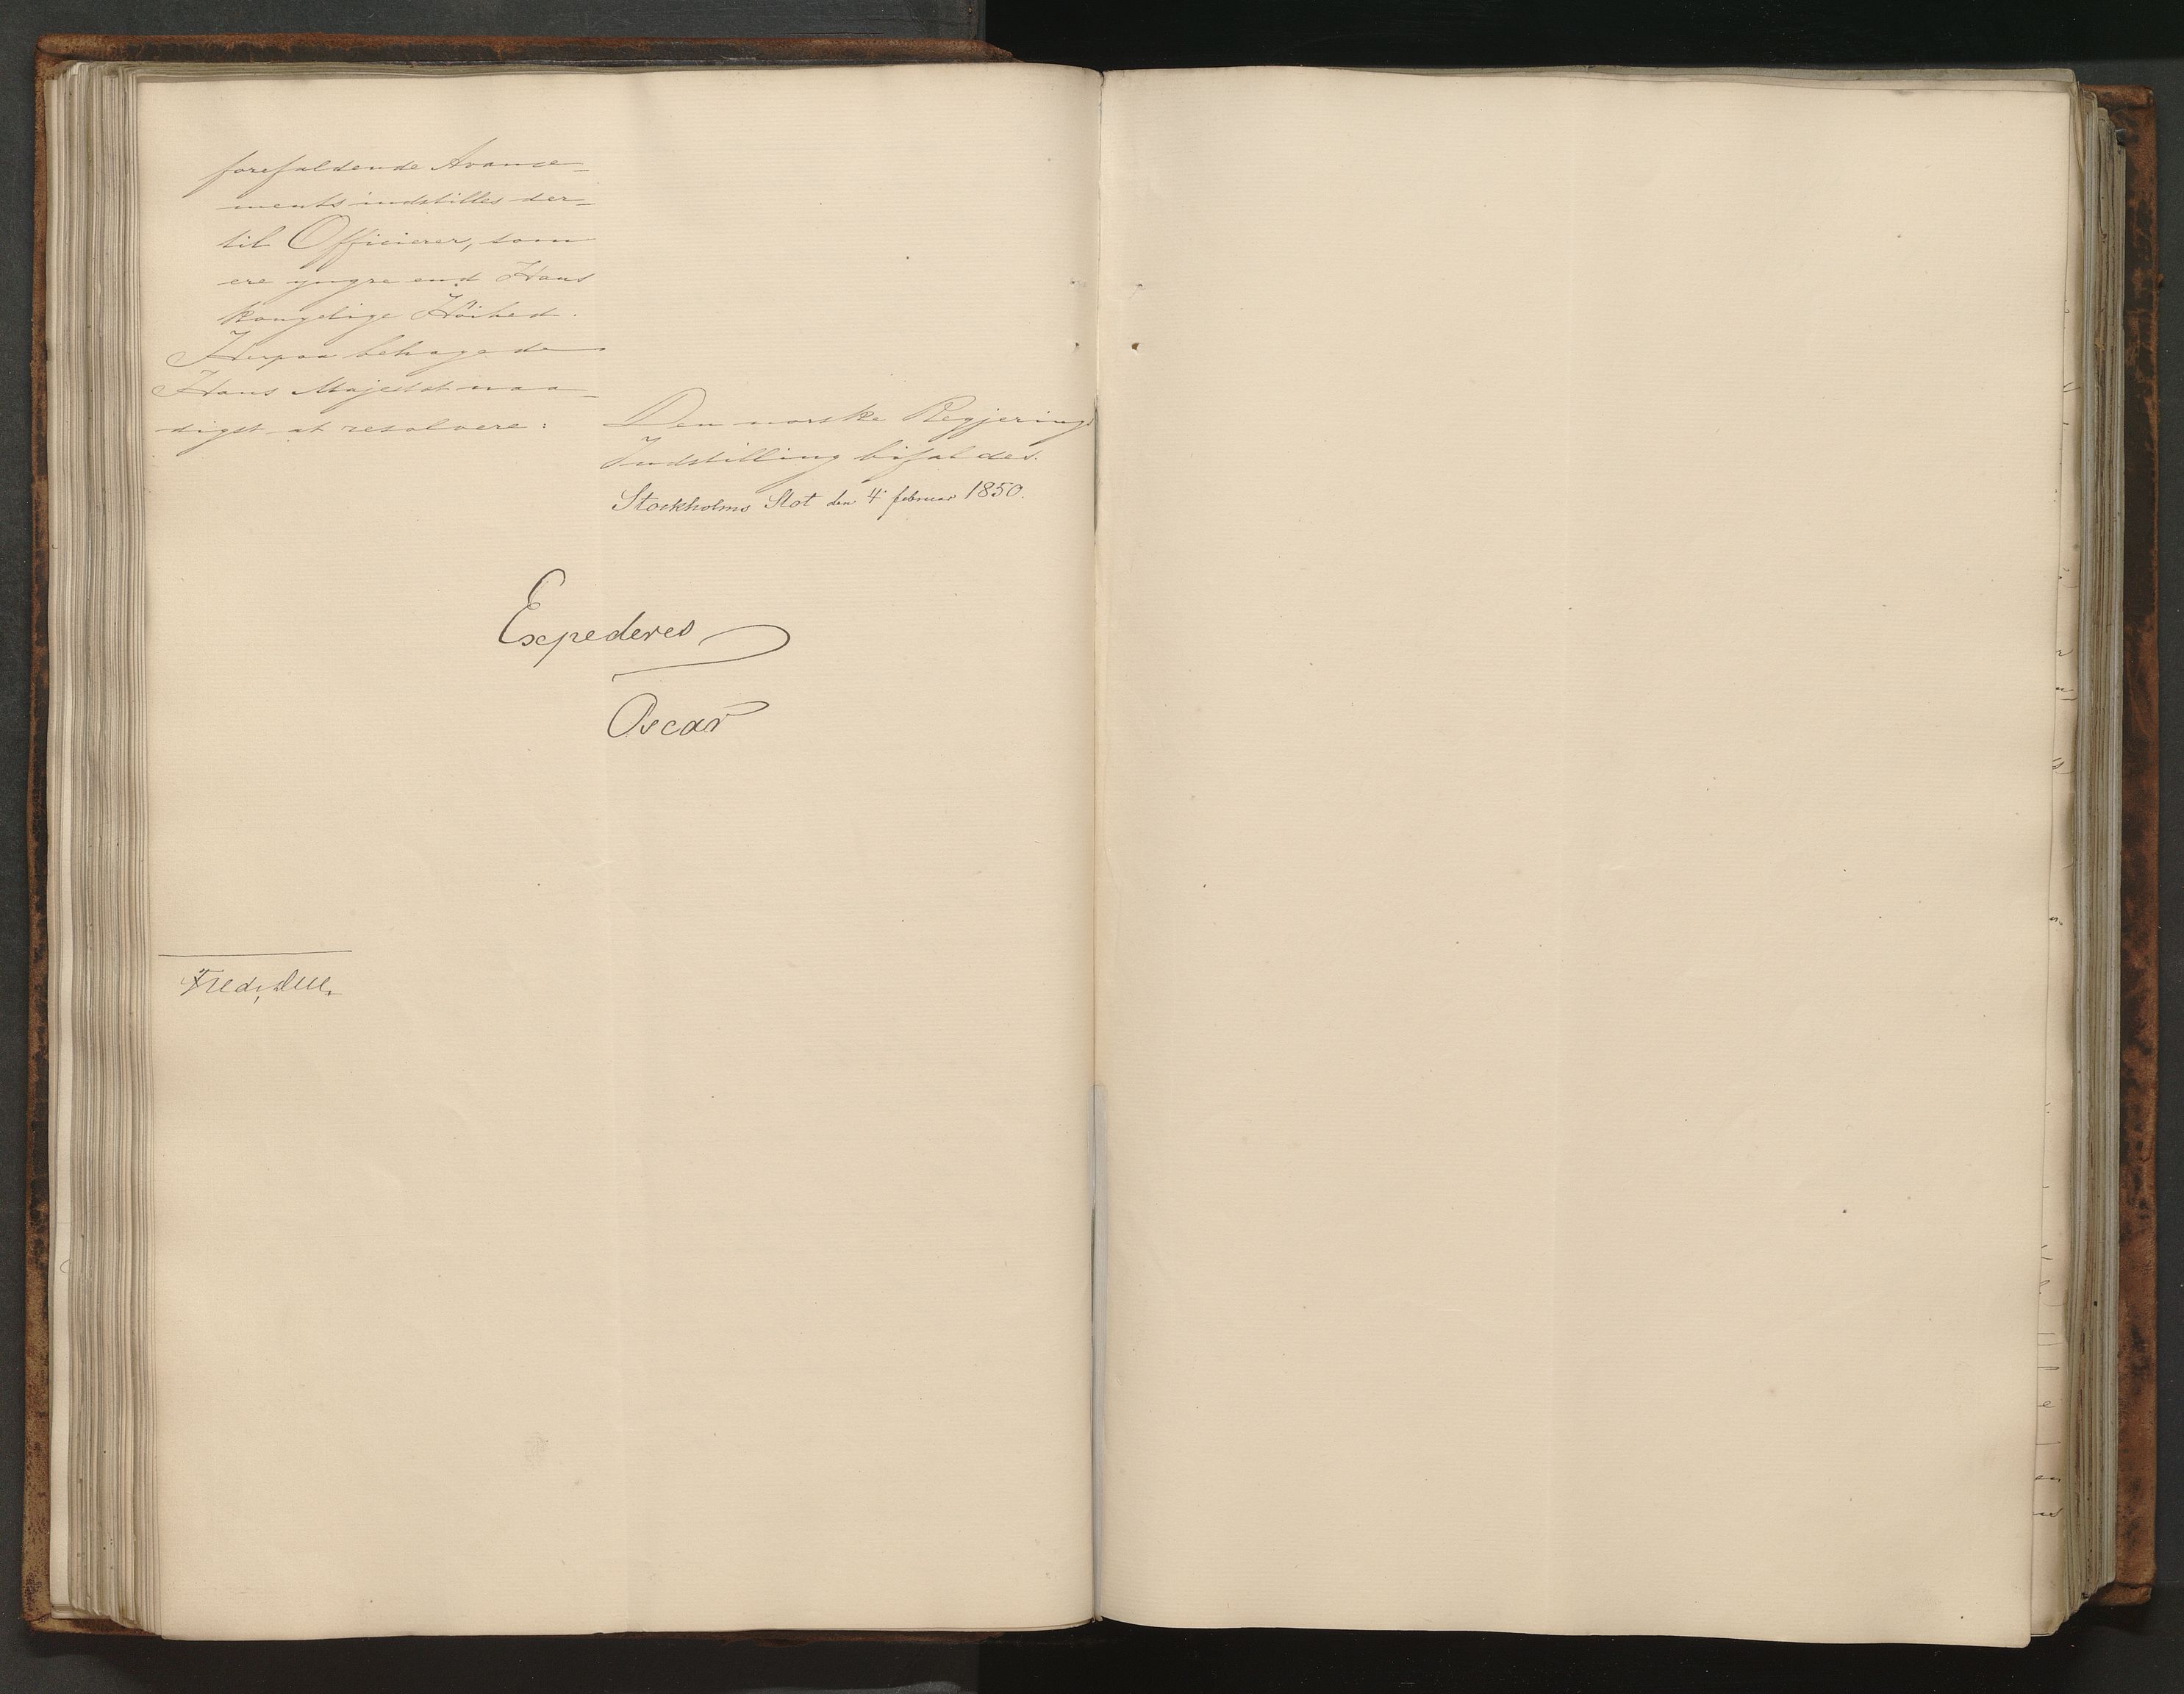 forefaldende Avance-
ments indstilles der-
til Officierer, som
ere yngre end Hans
kongelige Höihed.
Herpaa behagede
Hans Majestæt naa-
digst at resolvere:
Den norske Regjerings
Indstilling bifaldes.
Stockholms Slot den 4 februar 1850.
Expederes
Oscar
Fredr. Due.